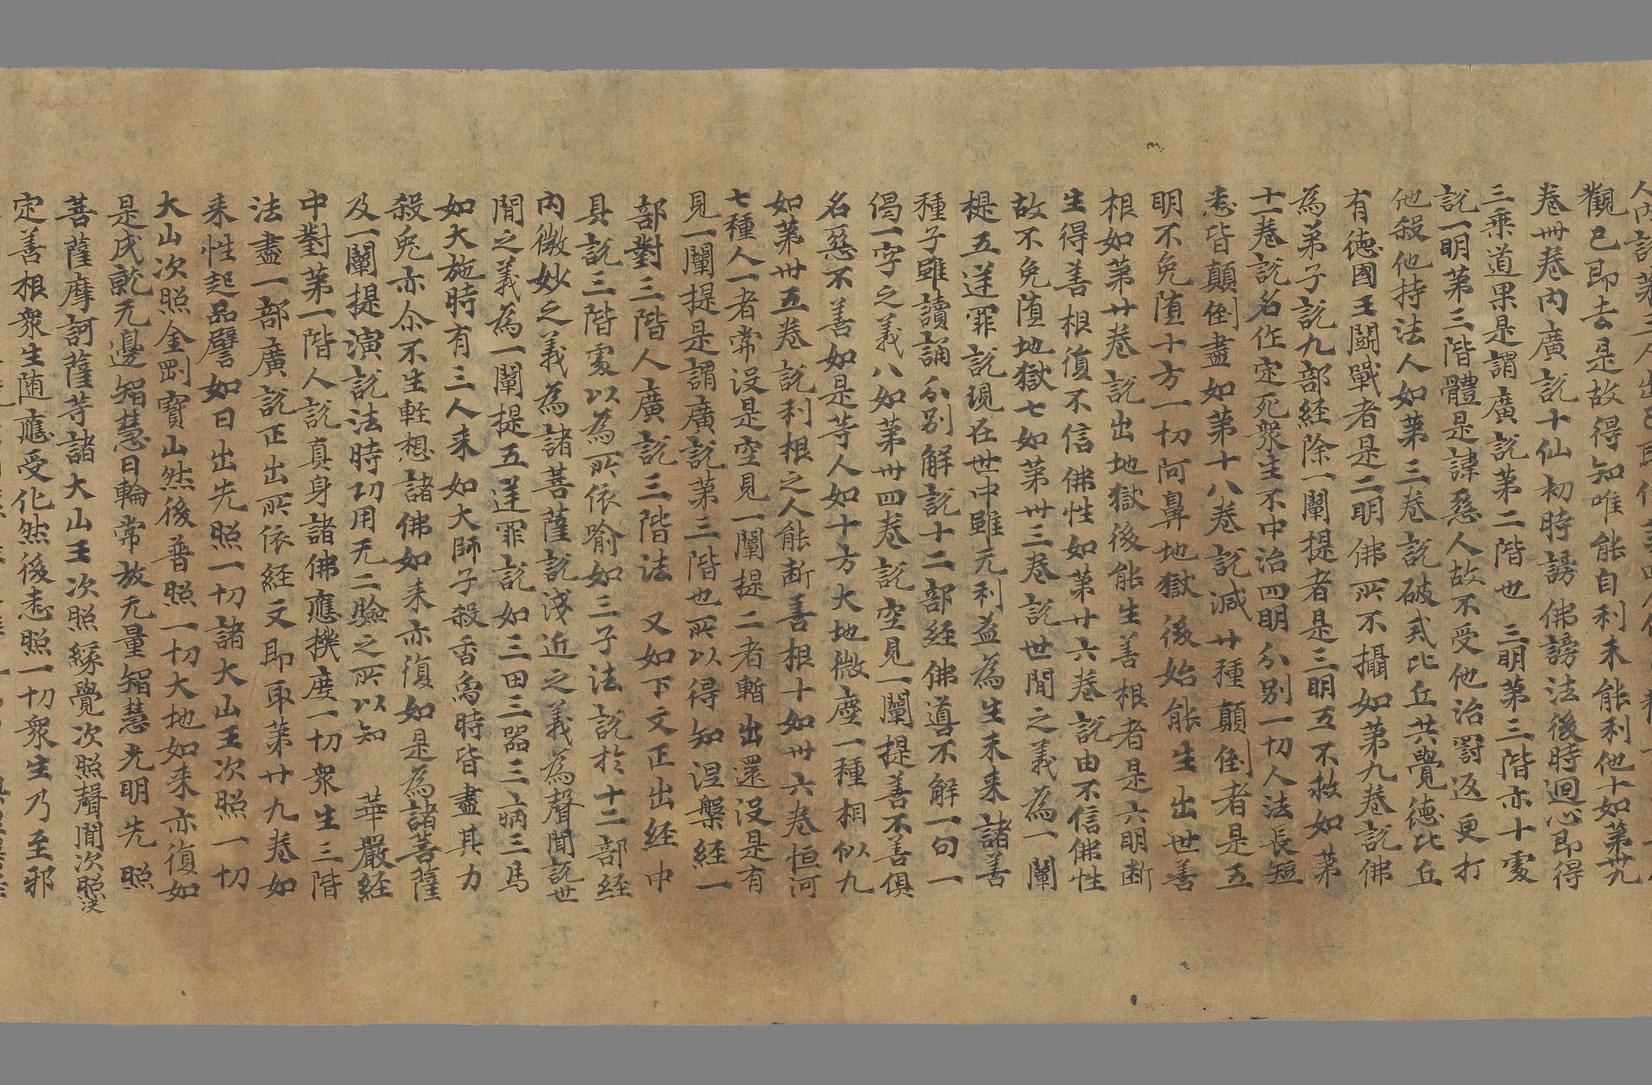 觀已即去是故得知唯能自利未能利他十如第卅九
卷卌卷内廣説十仙初時謗佛謗法後時迴心即得
三乘道果是謂廣説第二階也 三明第三階亦十處
説一明第三階體是謗惡人故不受他治罸返更打
他殺他持法人如第三卷説破戒比丘共覺德比丘
有德國王鬪戰者是二明佛所不攝如第九卷説佛
為弟子説九部經除一闡提者是三明五不救如第
十一卷説名作定死衆生不中治四明分别一切人法長短
悉皆顛倒盡如第十八卷説减廿種顛倒者是五
明不免墮十方一切阿鼻地獄後始能生出世善
根如第廿卷説出地獄後能生善根者是六明断
生得善根復不信佛性如第廿六卷説由不信佛性
故不免墮地獄七如第卅三卷説世間之義為一闡
提五逆罪説現在世中雖无利益為生未来諸善
種子雖讀誦分别解説十二部經佛道不解一句一
偈一字之義八如第卅四卷説空見一闡提善不善俱
名惡不善如是等人如十方大地微塵一種相似九
如第卅五卷説利根之人能断善根十如卅六卷恒河
七種人一者常没是空見一闡提二者暫出還没是有
見一闡提是謂廣説第三階也所以得知涅槃經一
部對三階人廣説三階法 又如下文正出經中
具説三階處以為所依喻如三子法説於十二部經
内微妙之義為諸菩薩説淺近之義為聲聞説世
間之義為一闡提五逆罪説如三田三器三病三馬
如大施時有三人来如大師子殺香爲時皆盡其力
殺兔亦尒不生輕想諸佛如来亦復如是為諸菩薩
及一闡提演説法時功用无二驗之所以知 華嚴經
中對第一階人説真身諸佛應機度一切衆生三階
法盡一部廣説正出所依經文即取第廿九卷如
来性起品譬如日出先照一切諸大山王次照一切
大山次照金剛寶山然後普照一切大地如来亦復如
是成就无邊智慧日輪常放无量智慧光明先照
菩薩摩訶薩等諸大山王次照緣覺次照聲聞次照决
定善根衆生随應受化然後悉照一切衆生乃至邪